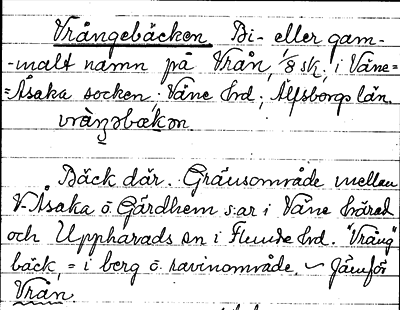 Vrångebäcken Bi- eller gam-
-malt namn på Vrån, 1/8 sk, i Väne=
=Åsaka socken; Väne hd; Älfsborgs län.
vràŋəbækən.
Bäck där. Gränsområde mellan
V-Åsaka o Gärdhem s:ar i Väne härad
och Upphärads sn i Flundre hd. "Vrång"
bäck, = i berg o ravinområde. ~ Jämför
Vrån